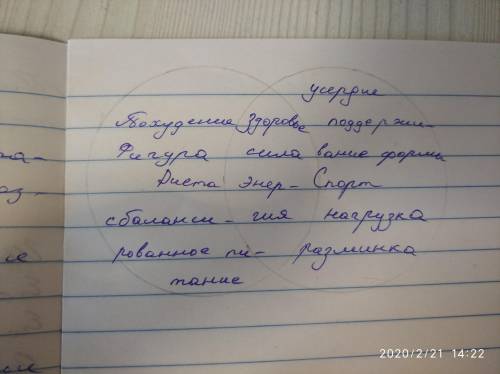 усердие
Похудение здоровье поддержи-
Фигура сила вание формы
Диета энер- Спорт
сбаланси- гия нагрузка
рованное пи- разминка
тание
2020/2/21 14:22